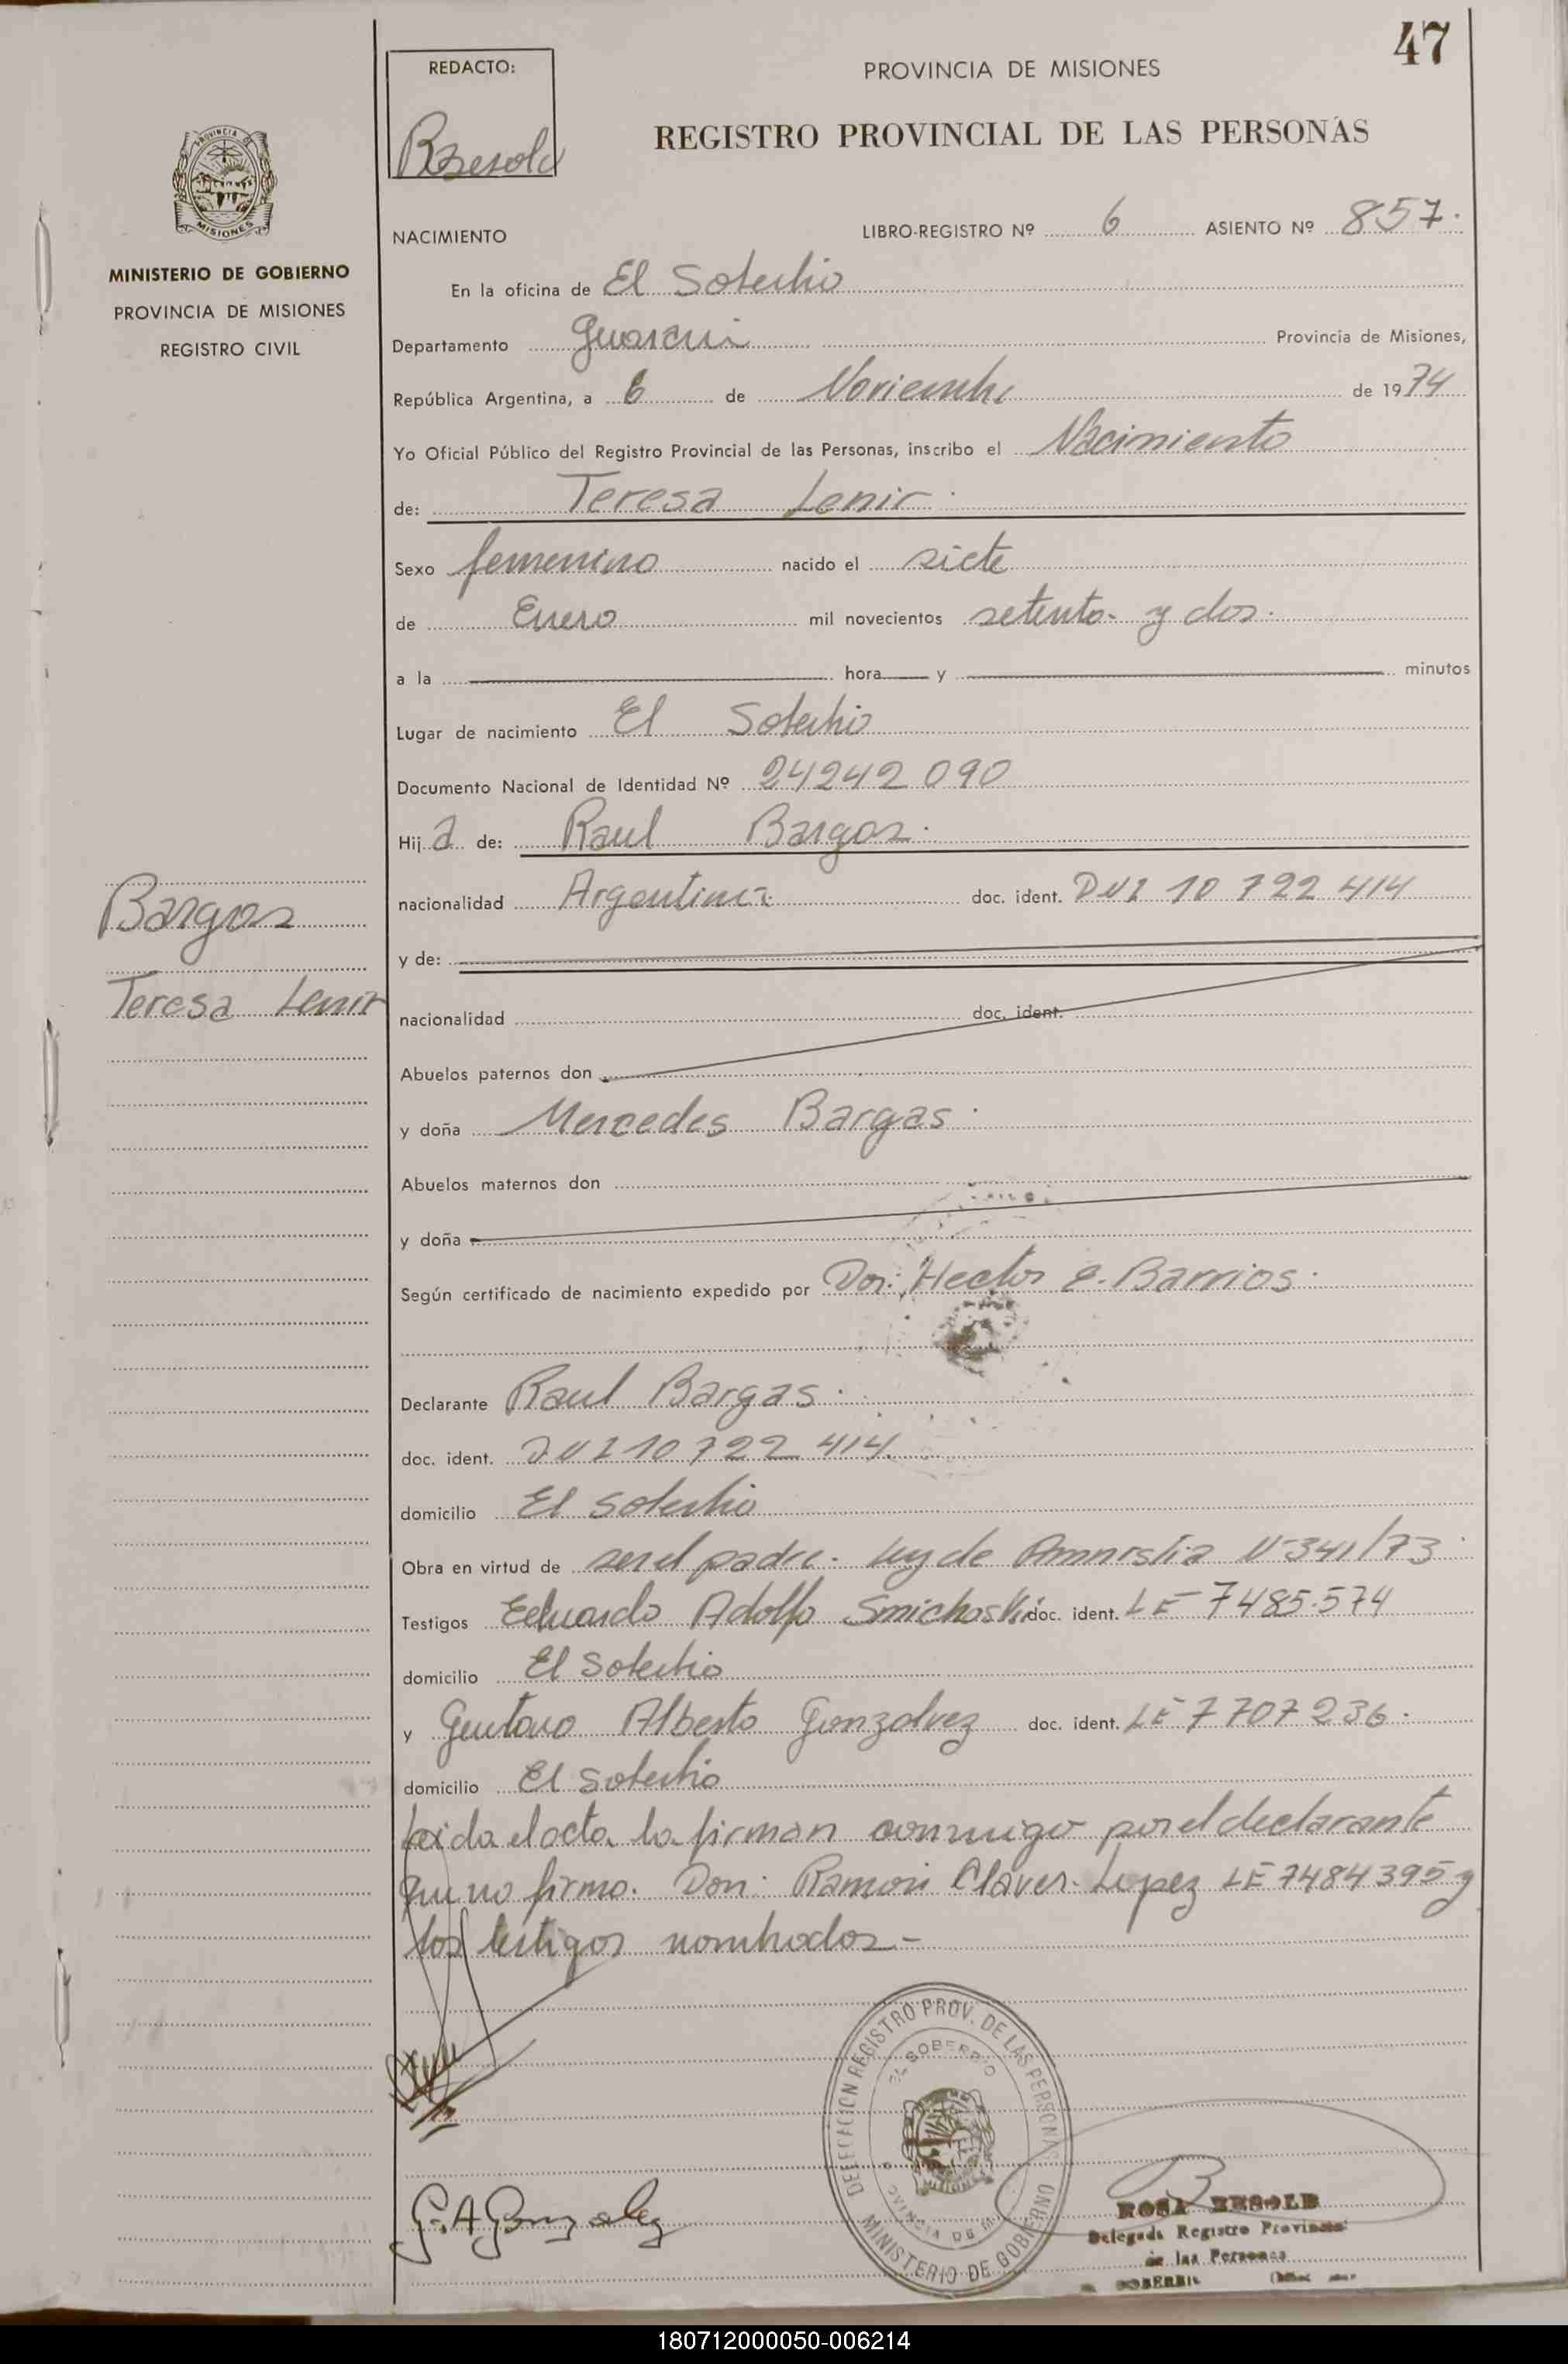 47
REDACTO:
PROVINCIA DE MISIONES
REGISTRO PROVINCIAL DE LAS PERSONAS
PROVINCIA
MISIONES
MINISTERIO DE GOBIERNO
PROVINCIA DE MISIONES
REGISTRO CIVIL
NACIMIENTO LIBRO-REGISTRO Nº 6 ASIENTO Nº 857.
En la oficina de El Soberbio
Departamento Guarani Provincia de Misiones,
República Argentina, a 6 de Noviembre de 1974
Yo Oficial Público del Registro Provincial de las Personas, inscribo el Nacimiento
de: Teresa Lenir.
Sexo femenino nacido el siete
de Enero mil novecientos setenta y dos.
a la hora y minutos
Lugar de nacimiento El Soberbio
Documento Nacional de Identidad Nº 24242090
Hija de: Raul Bargas.
nacionalidad Argentina doc. ident. DNI 10 722 414
Bargas
y de:
Teresa Lenir
nacionalidad doc. ident.
Abuelos paternos don
y doña Mercedes Bargas.
Abuelos maternos don
y doña
Según certificado de nacimiento expedido por Don: Hector E. Barrios.
Declarante Raul Bargas.
doc. ident. DNI 10 722 414.
domicilio El Soberbio
Obra en virtud de ser el padre. Ley de Amnistia Nº 341/73.
Testigos Eduardo Adolfo Smichoski doc. ident. LE 7485.574
domicilio El Soberbio
y Gustavo Alberto Gonzalvez doc. ident. LE 7707236.
domicilio El Soberbio
Leida el acta la firman conmigo por el declarante
que no firma. Don: Ramon Claver Lopez LE 7484395 y
los testigos nombrados.-
DELEGACION REGISTRO PROV. DE LAS PERSONAS
EL SOBERBIO
PROVINCIA DE M.
MINISTERIO DE GOBIERNO
G. A. Gonzalez
ROSA BESOLD
Delegada Registro Provincial
de las Personas
SOBERBIO
180712000050-006214